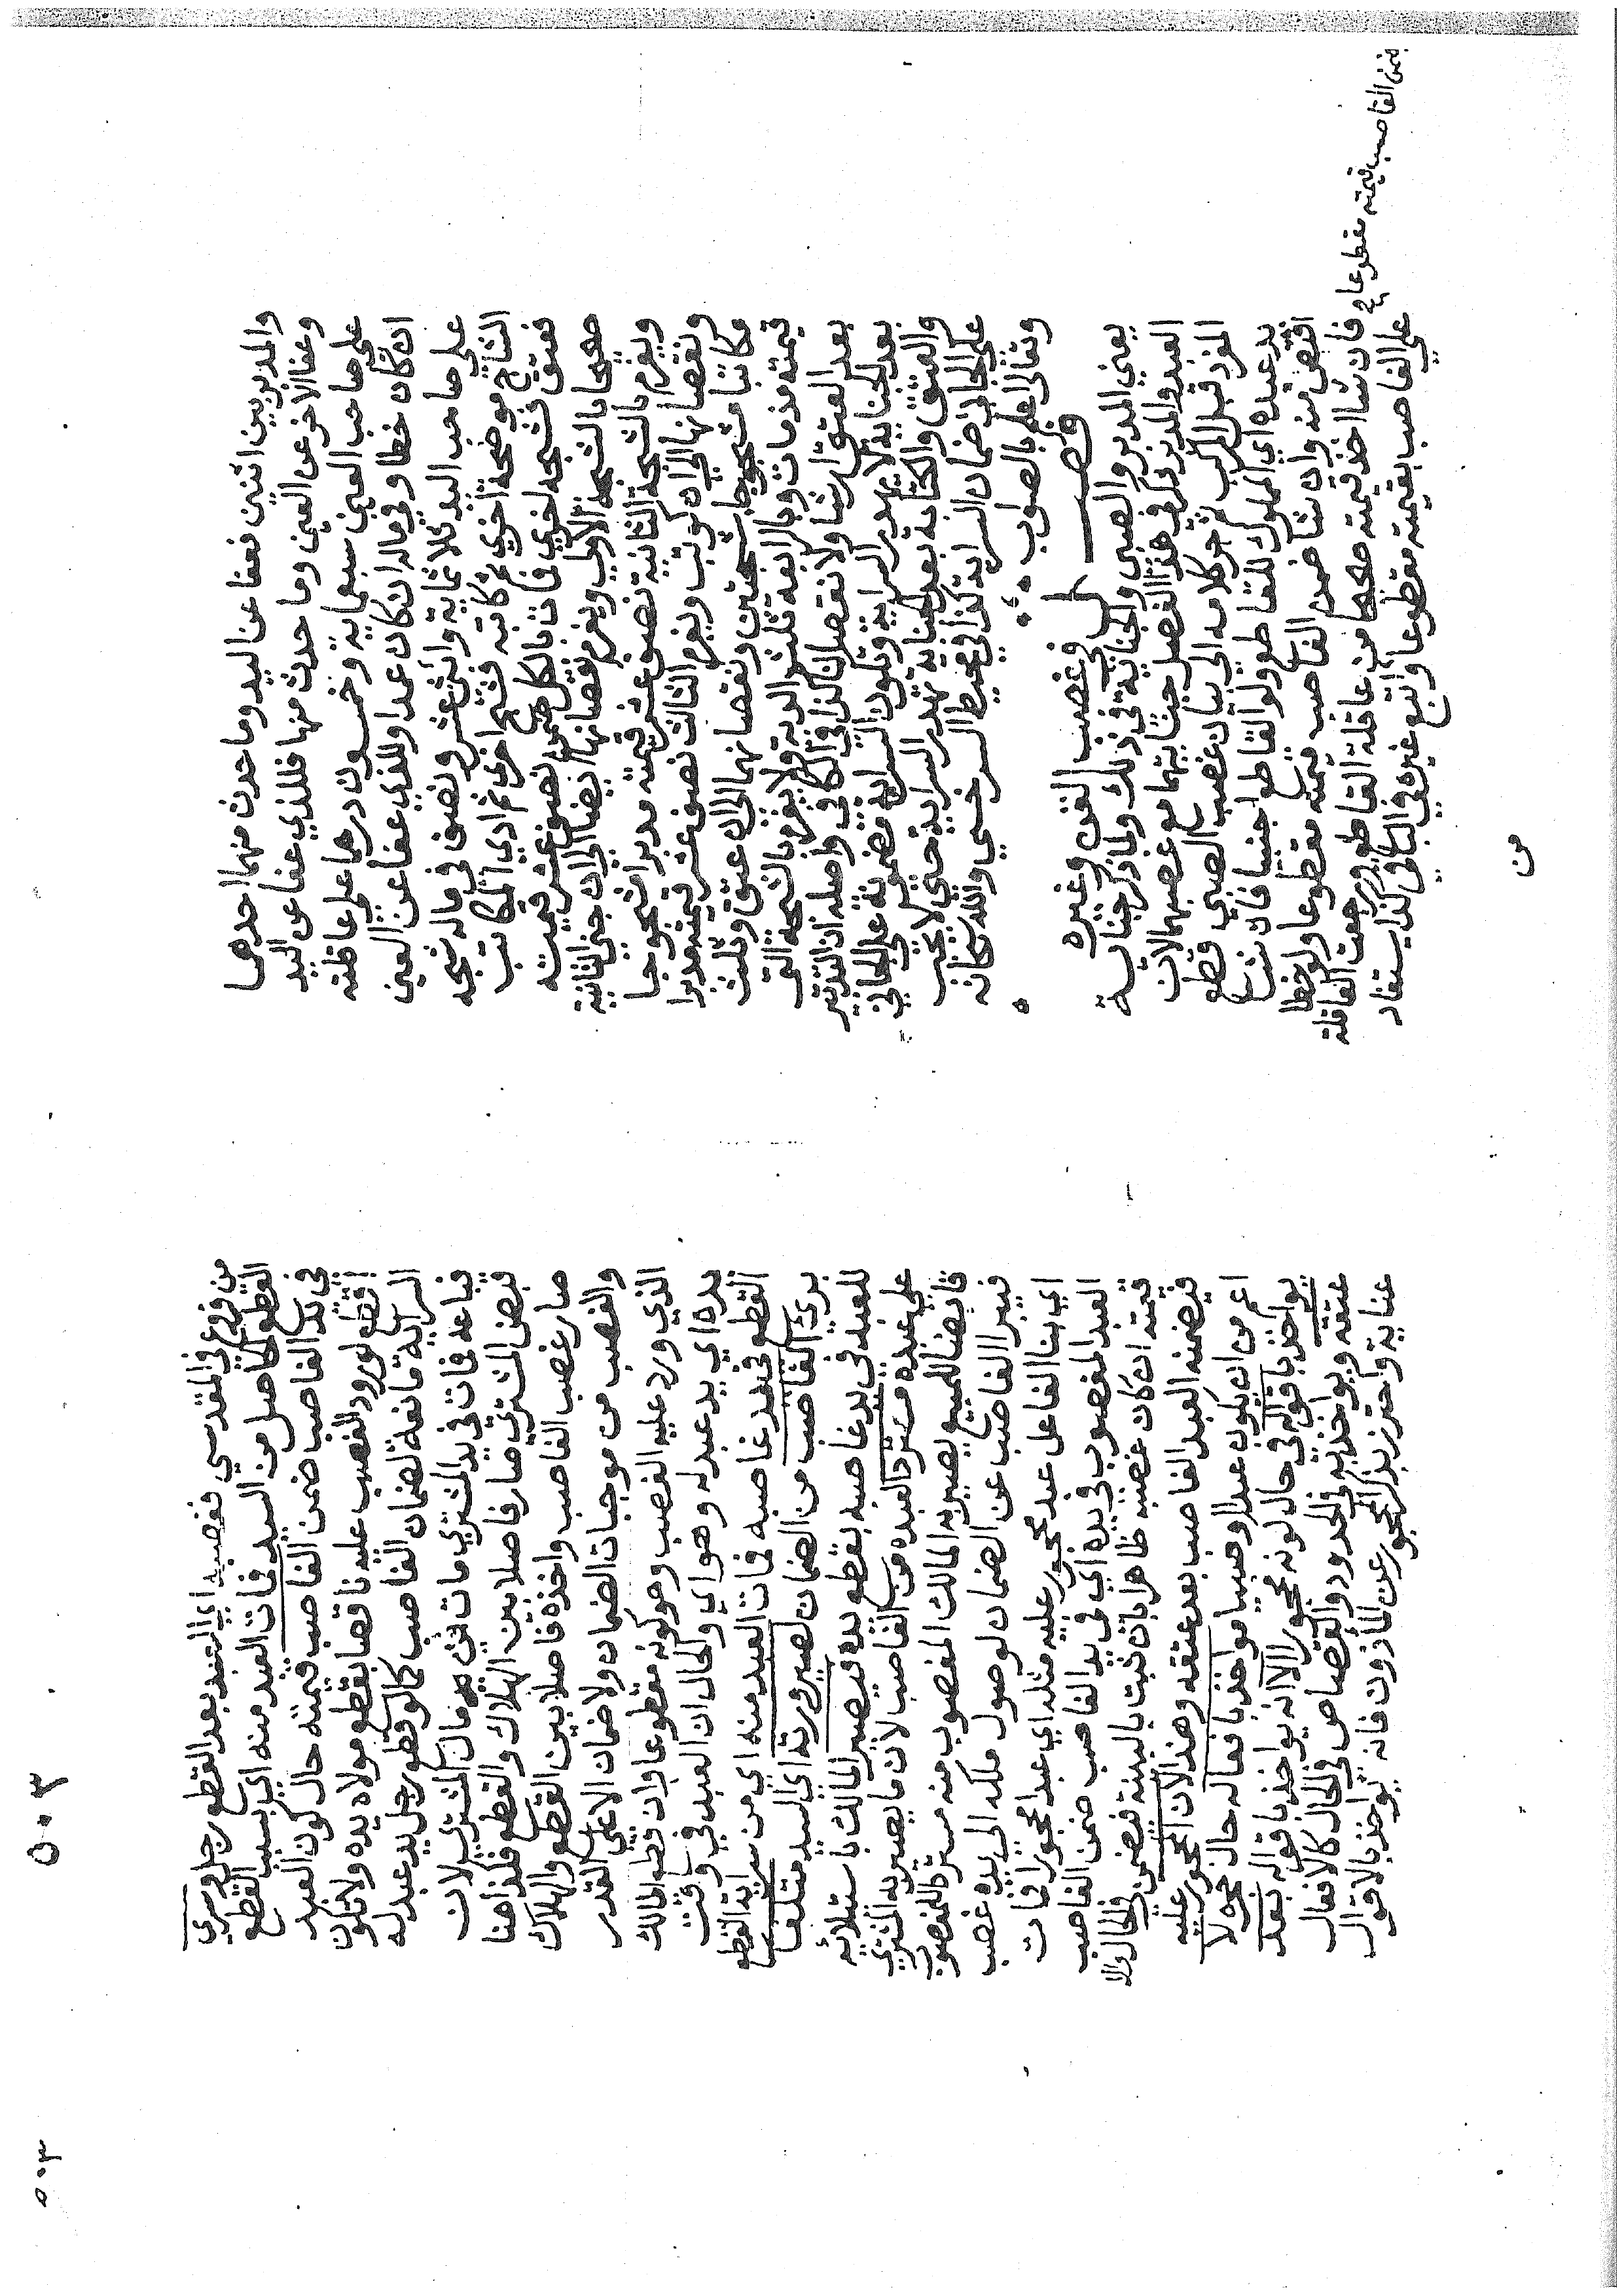 والمدبر بين اثنين فعفا عن اليد وما حدث منهما احدهما
وعفا الاخر عن العين وما حدث منها فللذي عفا عن اليد
علي صاحب العين سبعماية وخمسون درهما علي عاقلته
ان كان خطا وفي ماله ان كان عمدا وللذي عفا عن العين
علي صاحب اليد ثلاثماية واثني عشر ونصف في ماله شجه
الشاج موضحة اخري ثم كاتبه فشجه اخري ثم ادي المكاتب
فعتق فشجه اخري فمات بالكل ضمن نصف عشر قيمته
صحيحا بالشجة الاولي ويغرم نقصانها ايضا الي ان جني الثانية
ويغرم بالشجة الثانية نصف عشر قيمته مدبرا مشجوجا
ونقصانها الي ان كوتب ويغرم الثالث نصف عشر قيمته مدبرا
مكاتبا مشجوجا شجتين ونقصانهما الي ان عتق وثلث
قيمته مذ مات وبالرابعة ثلث الدية ولا يغرم بالشجة التي
بعد العتق ارشا ولا نقصان كذا في الكافي واصله ان التدبير
بعد الجناية لا يهدر السراية وتكون السراية مضمونة علي الجاني
والعتق والكتابة بعد الجناية تهدر السراية حتي لا يجب
علي الجاني ضمان السراية كذا في محيط السرخسي والله سبحانه
وتعالي اعلم بالصواب
فصل في غصب القن وغيره
يعني المدبر والصبي والجناية في ذلك ولما ذكر جناية
العبد والمدبر ذكر في هذا الفصل جنايتهما مع غصبهما لان
المفرد قبل المركب ثم جر كلامه الي بيان غصب الصبي قطع
يد عبده اي المملوك للقاطع ولو القاطع اجنبيا فان شاء
اقتص منه وان شاء ضمن الغاصب قيمته مقطوعا ولو خطا
فان شاء اخذ قيمته صحيحا من عاقلة القاطع ورجعت العاقلة
علي الغاصب بقيمته مقطوعا واتبع غيره في الباقي كذا يستفاد
يضمن الغاصب قيمته مقطوعا
من
٥٠٣
من فروع المقدسي فغصبه اي العبد بعد القطع رجل وسري
القطع الحاصل من السيد فمات العبد منه اي بسبب القطع
في يد الغاصب ضمن الغاصب قيمته حال كون العبد
اقطع لورود الغصب عليه ناقصا بقطع مولاه يده ولا تكون
السراية مانعة لضمان الغاصب كما لو قطع رجل يد عبد له
فباعه فمات في يد المشتري مات من مال المشتري لان
قبض المشتري صار فاصلا بين الهلاك والقطع فلذا هنا
صار غصب الغاصب واخذه فاصلا بين القطع والهلاك
والغصب من موجبات الضمان ولا ضمان الا علي القدر
الذي ورد عليه الغصب وهو كونه مقطوعا وان قطع المالك
يده اي يد عبد له وهو اي والحال ان العبد في وقت
القطع في يد غاصبه فمات العبد منه اي من سراية القطع
بري الغاصب من الضمان لصيرورته اي السيد متلفا
للعبد في يد غاصبه بقطع يده فيصير المالك باستيلائه
علي عبده مستردا لعبده من الغاصب لان ما يصير به المشتري
قابضا للمبيع يصير به المالك المغصوب منه مستردا للمغصوب
فيبرا الغاصب عن الضمان لوصول ملكه الي يده غصب
اي بنا الفاعل عبد محجور عليه مثله اي عبدا محجورا فمات
العبد المغصوب في يده اي في يد الغاصب ضمن الغاصب
قيمته ان كان غصبه ظاهرا بان ثبت بالبينة فيضمن في الحال والا
فيضمنه العبد الغاصب بعد عتقه وهذا لان المحجور عليه
اعم من ان يكون عبدا او صبيا مواخذ بافعاله حال حجره لا
يواخذ باقواله في حال كونه محجورا الا انه يواخذ باقواله بعد
عتقه ويواخذ به في الحدود والقصاص في الحال كالافعال
عناية واحترز بذكر المحجور عن المأذون فانه يواخذ بالاقوال
٥٠٣